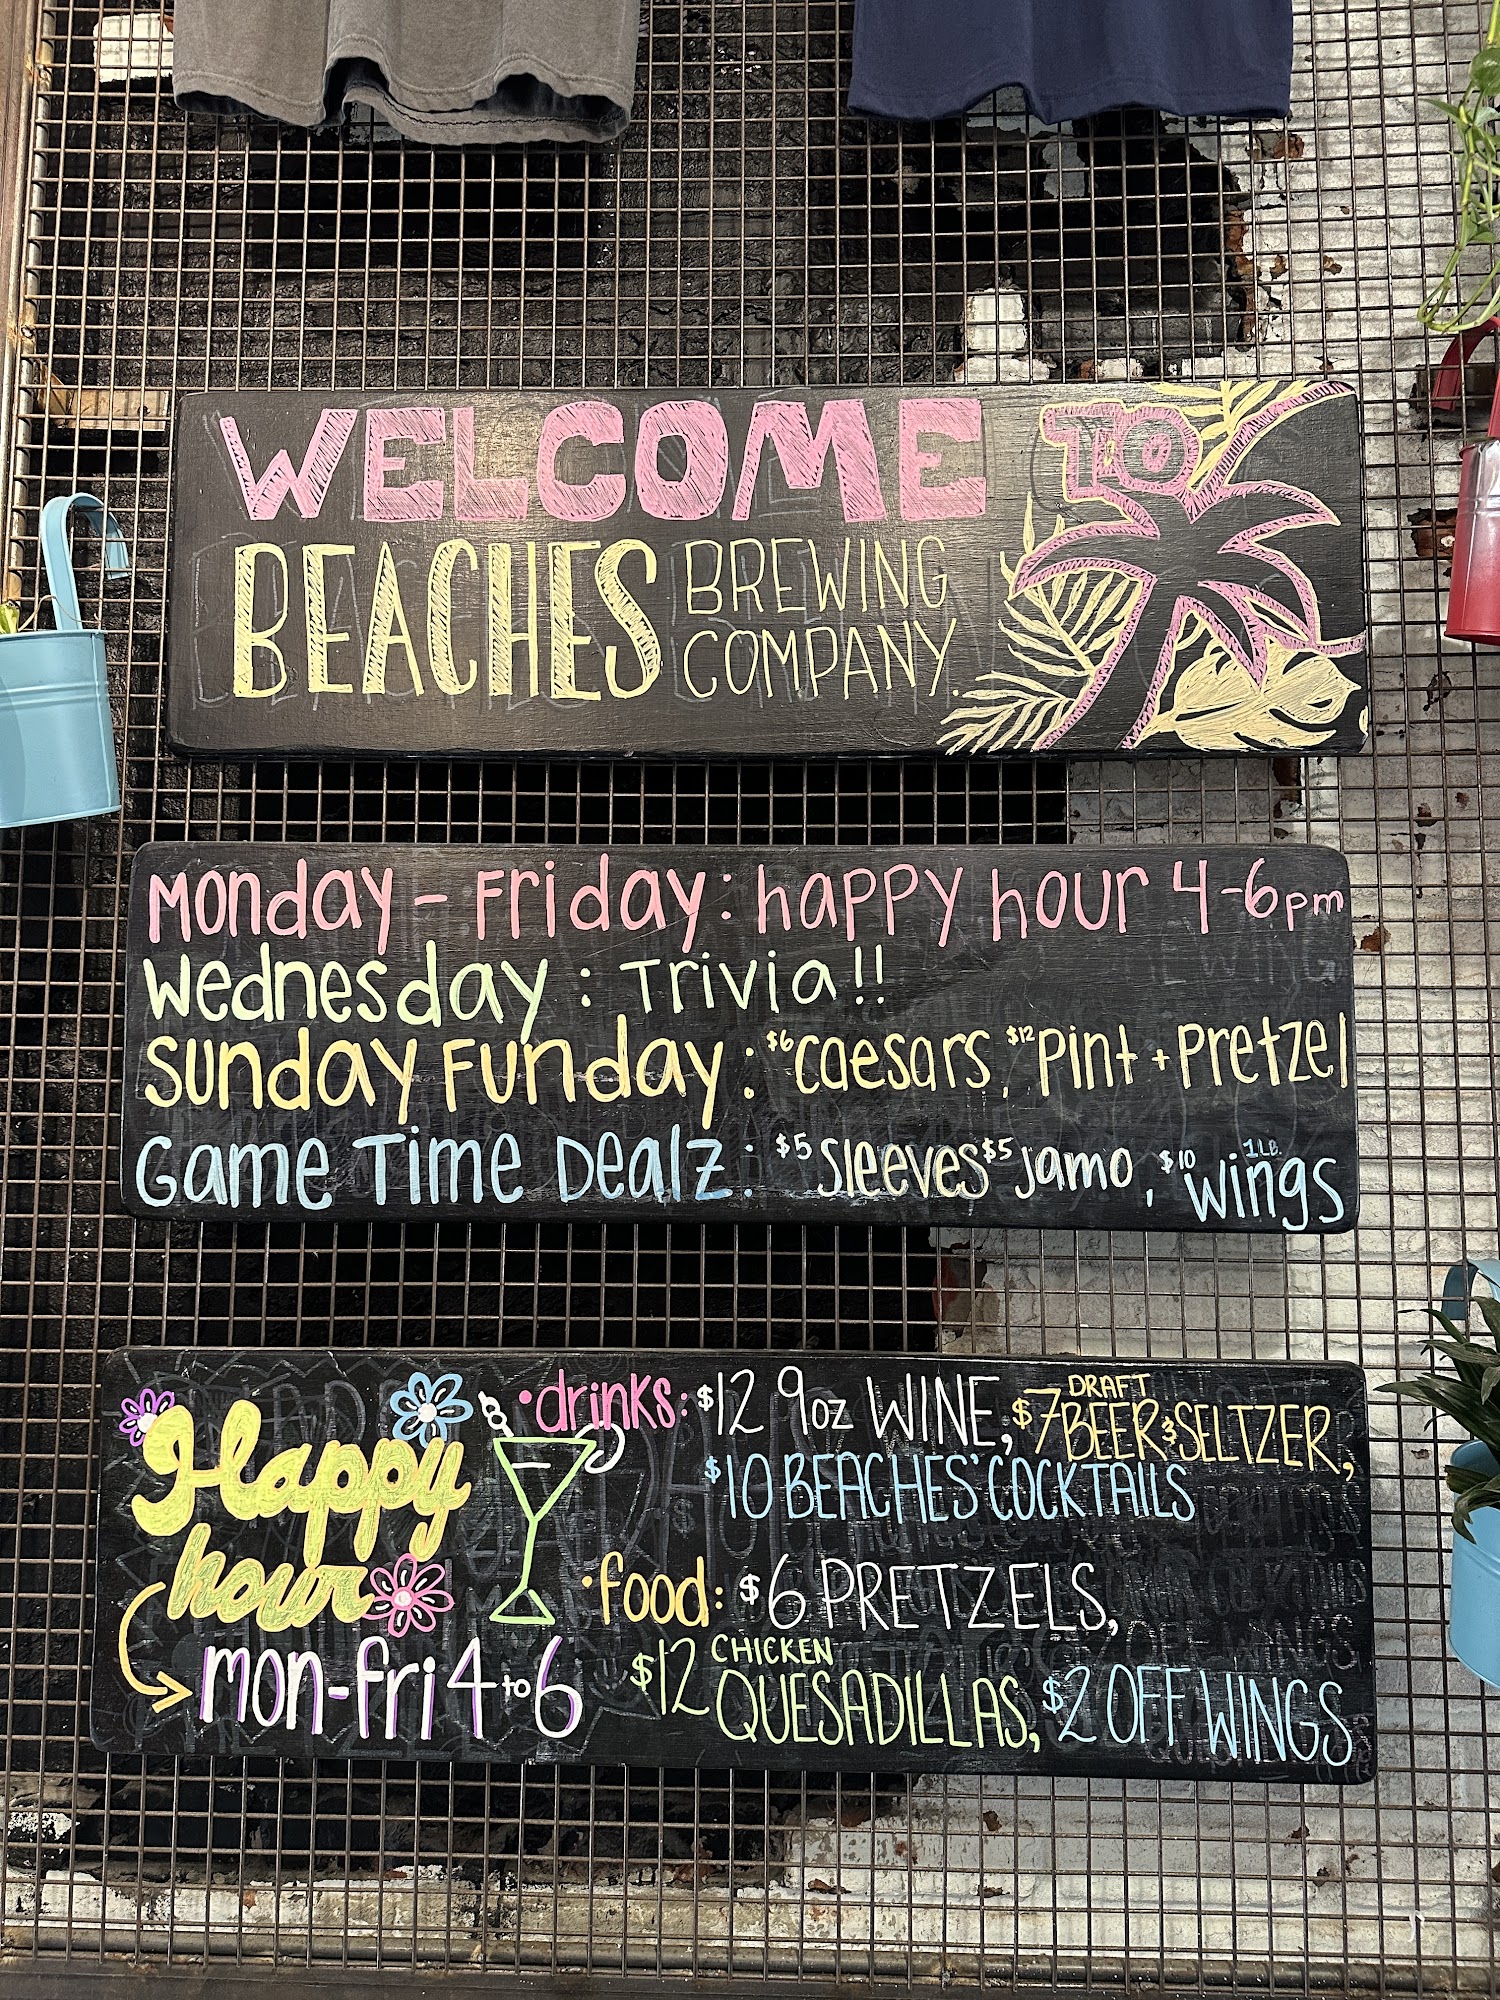 WELCOME TO
BEACHES BREWING
COMPANY.
Monday - Friday: happy hour 4-6pm
Wednesday: Trivia!!
Sunday Funday: $6 Caesars, $12 Pint + Pretzel
Game Time Dealz: $5 Sleeves $5 Jamo, $10 1LB. Wings
Happy
hour
mon-fri 4 to 6
• drinks: $12 9oz WINE, $7 DRAFT BEER & SELTZER,
$10 BEACHES' COCKTAILS
• food: $6 PRETZELS,
$12 CHICKEN QUESADILLAS, $2 OFF WINGS